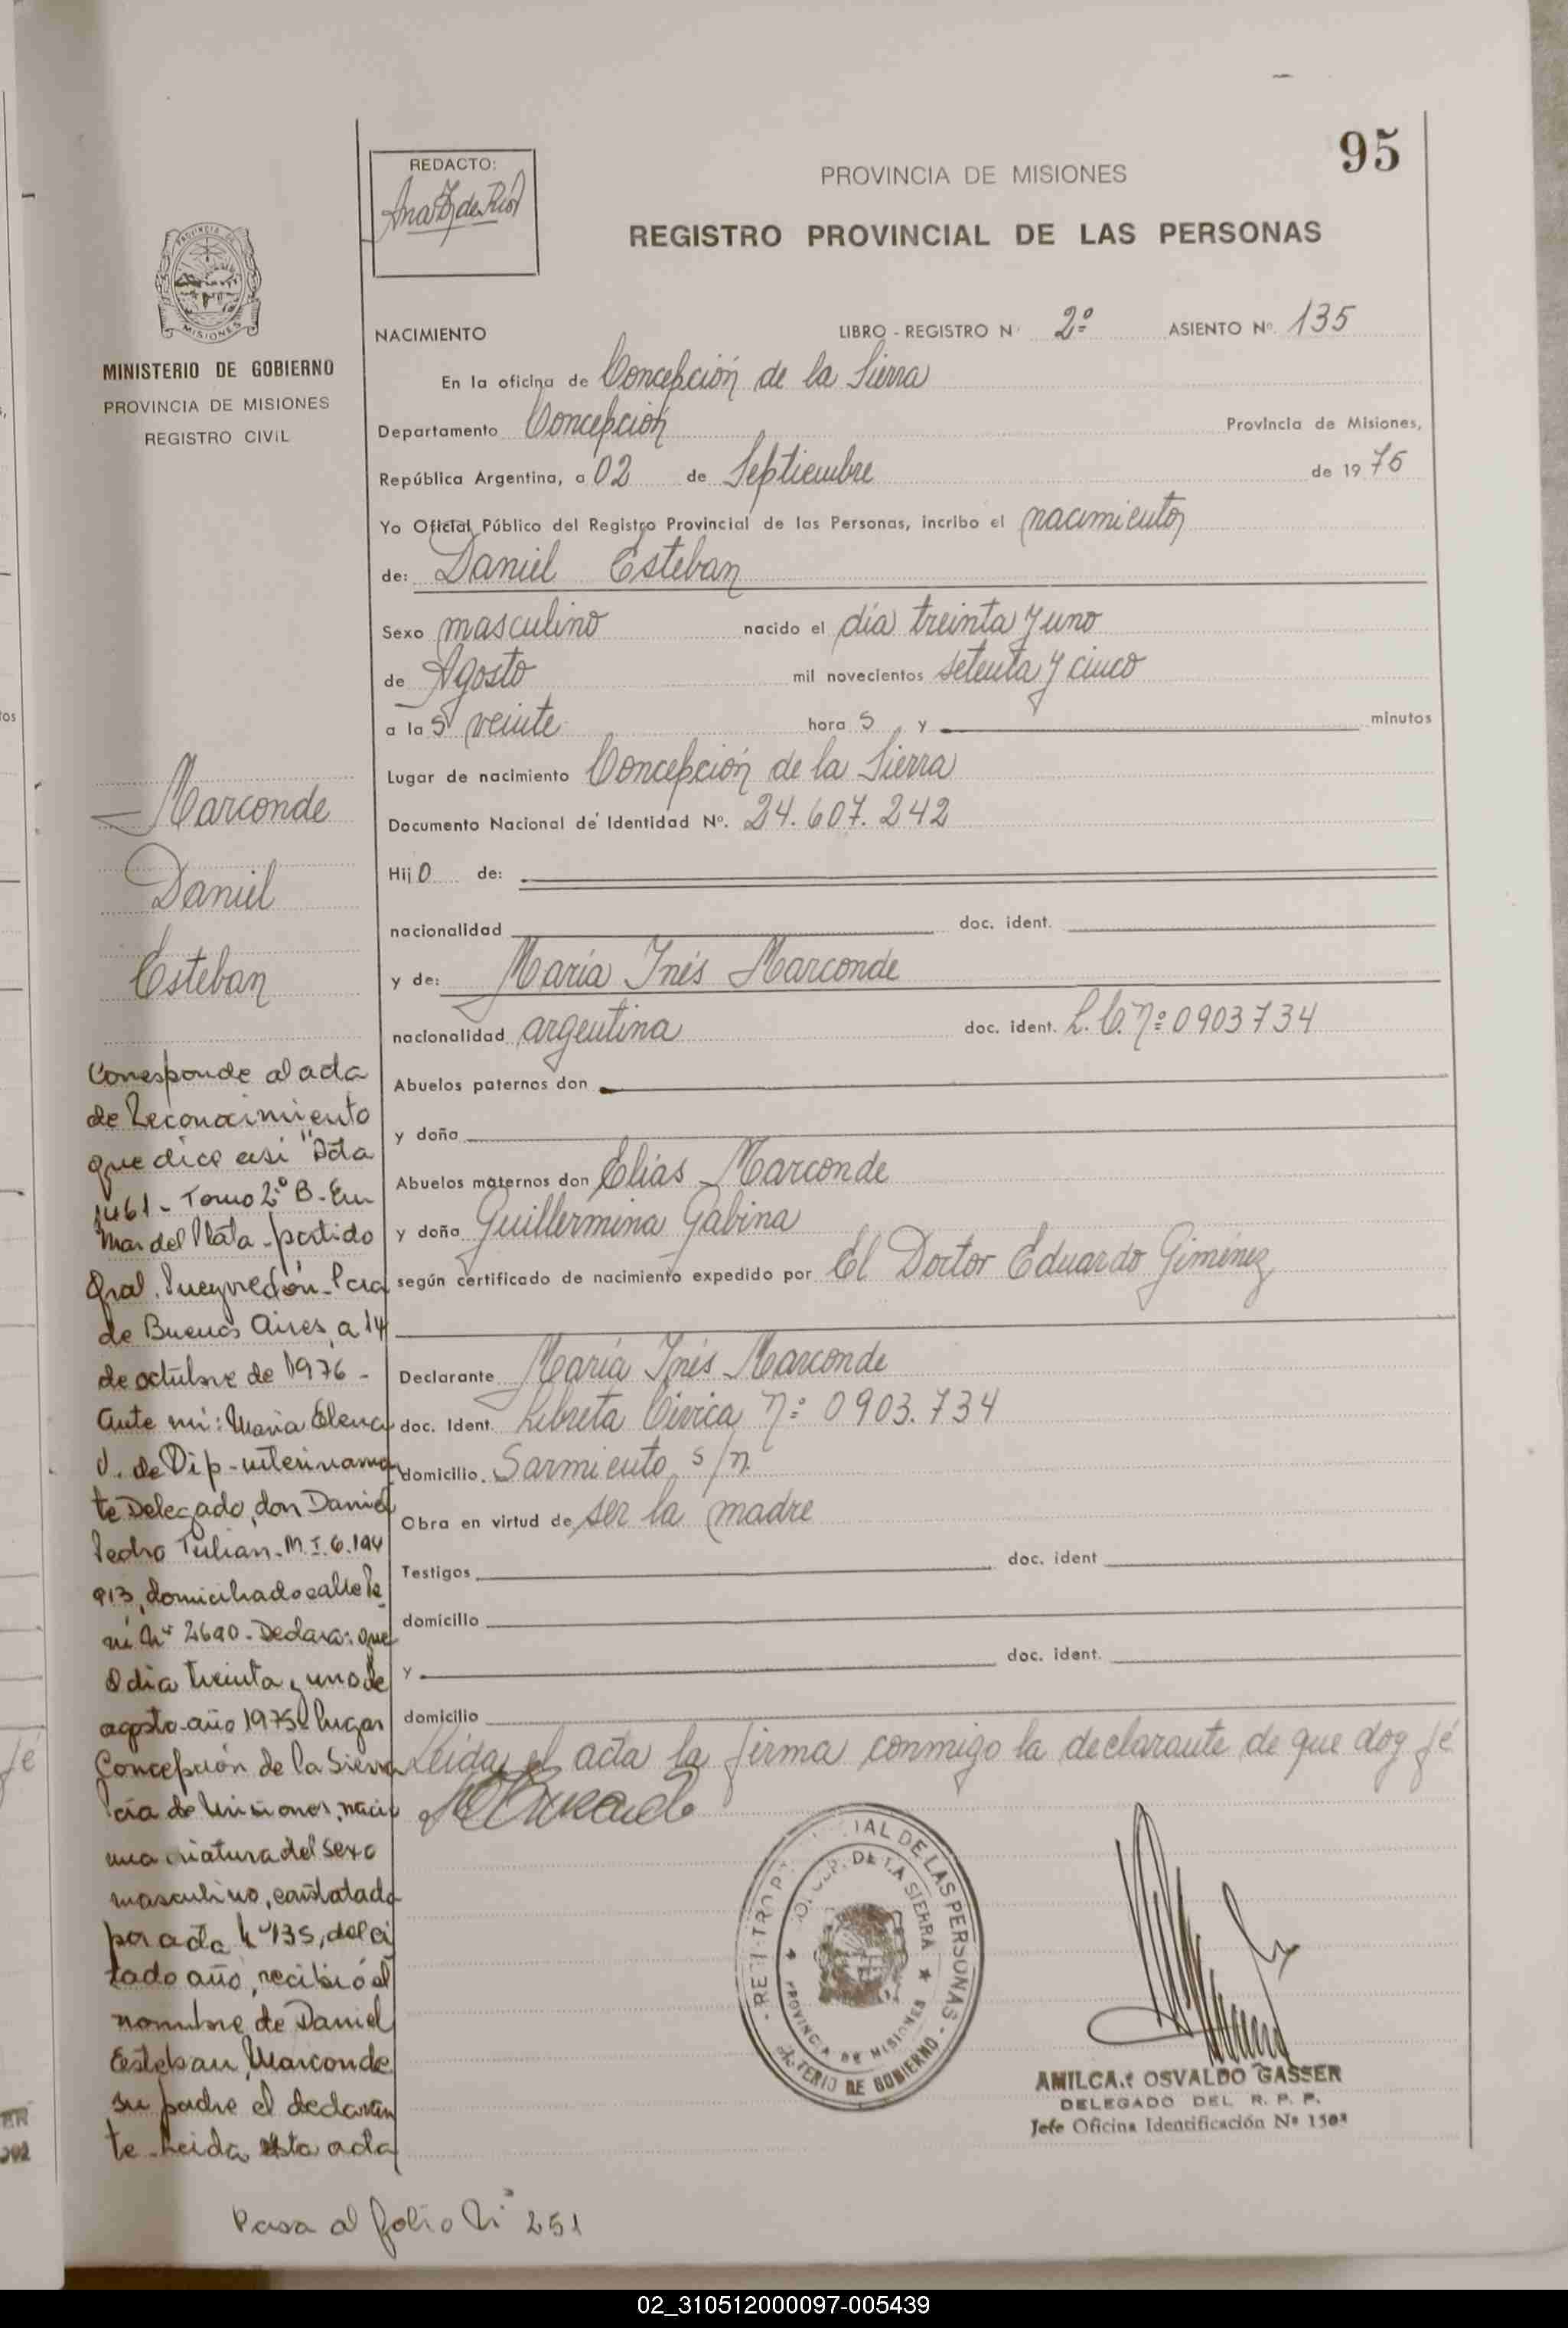 95
REDACTO:
PROVINCIA DE MISIONES
REGISTRO PROVINCIAL DE LAS PERSONAS
MINISTERIO DE GOBIERNO
PROVINCIA DE MISIONES
REGISTRO CIVIL
NACIMIENTO LIBRO - REGISTRO N° 2º ASIENTO Nº. 135
En la oficina de Concepción de la Sierra
Departamento Concepción Provincia de Misiones,
República Argentina, a 02 de Septiembre de 19 75
Yo Oficial Público del Registro Provincial de las Personas, incribo el nacimiento
de: Daniel Esteban
Sexo masculino nacido el día treinta y uno
de Agosto mil novecientos setenta y cinco
a las veinte hora s y minutos
Lugar de nacimiento Concepción de la Sierra
Documento Nacional de Identidad Nº. 24.607.242
Hijo de:
nacionalidad doc. ident.
y de: María Inés Marconde
nacionalidad argentina doc. ident. L.C. nº 0903734
Abuelos paternos don
y doña
Abuelos maternos don Elías Marconde
y doña Guillermina Gabina
según certificado de nacimiento expedido por El Doctor Eduardo Giménez
Declarante María Inés Marconde
doc. Ident. Libreta Cívica nº 0903.734
domicilio. Sarmiento s/n
Obra en virtud de ser la madre
Testigos doc. ident
domicilio
y doc. ident.
domicilio
Leida el acta la firma conmigo la declarante de que doy fé
Marconde
Daniel
Esteban
Corresponde al acta
de Reconocimiento
que dice asi "Acta
1461 - Tomo 2º B - En
Mar del Plata - partido
Gral. Pueyrredón - Pcia
de Buenos Aires, a 14
de octubre de 1976 -
Ante mi: María Elena
V. de Dip - interinamen
te Delegado, don Daniel
Pedro Tulian - M.I. 6.194
913, domiciliado calle Pe
Nº 2690 - Declara: que
el dia treinta y uno de
agosto - año 1975 - lugar
Concepción de la Sierra
Pcia de Misiones, nació
una criatura del sexo
masculino, constatado
por acta Nº 135, del ci
tado año, recibió el
nombre de Daniel
Esteban, Marconde
su padre el declaran
te - Leida esta acta
Pasa al folio Nº 251
REGISTRO PROVINCIAL DE LAS PERSONAS
DE LA SIERRA
PROVINCIA DE MISIONES
MINISTERIO DE GOBIERNO
AMILCAR OSVALDO GASSER
DELEGADO DEL R. P. P.
Jefe Oficina Identificación Nº
02_310512000097-005439